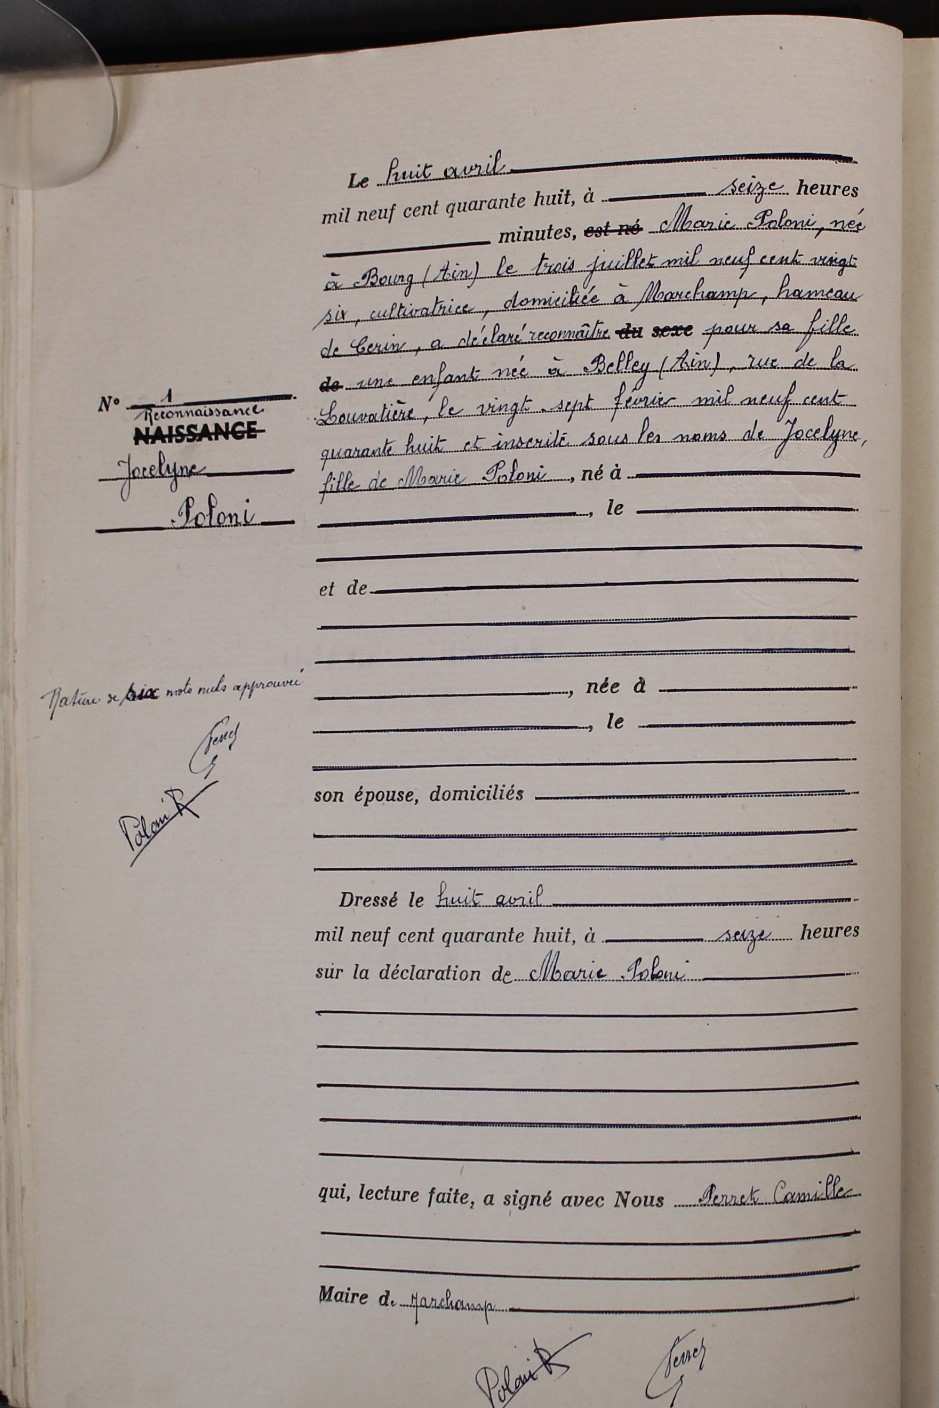 Le huit avril
mil neuf cent quarante huit, à seize heures
minutes, est né Marie Poloni, née
à Bourg (Ain) le trois juillet mil neuf cent vingt
six, cultivatrice, domiciliée à Marchamp, hameau
de Cerin, a déclaré reconnaître du sexe pour sa fille
de une enfant née à Belley (Ain), rue de la
Louvatière, le vingt sept février mil neuf cent
quarante huit et inscrite sous les noms de Jocelyne,
fille de Marie Poloni, né à
, le
et de
, née à
, le
son épouse, domiciliés
Dressé le huit avril
mil neuf cent quarante huit, à seize heures
sur la déclaration de Marie Poloni
qui, lecture faite, a signé avec Nous Perret Camille
Maire de Marchamp
Poloni Perret
N° 1
Reconnaissance
NAISSANCE
Jocelyne
Poloni
Rature de six mots nuls approuvée
Perret
Poloni